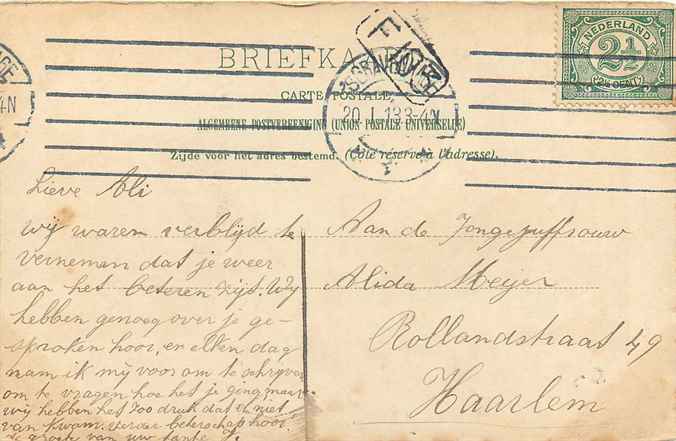 BRIEFKA
CARTE POSTALE
ALGEMEENE POSTVEREENIGING (UNION POSTALE UNIVERSELLE)
Zijde voor het adres bestemd. (Côté réservé à l'adresse).
NEDERLAND
2½
20.1.13 3-4N
Lieve Ali
wij waren verblijd te
vernemen dat je weer
aan het beteren zijt. Wij
hebben genoeg over je ge-
sproken hoor, en elken dag
nam ik mij voor om te schrijven
om te vragen hoe het je ging maar
wij hebben het zoo druk dat er niet
van kwam. verder beterschap hoor
de groeten van uw tante
Aan de Jongejuffrouw
Alida Meijer
Rollandstraat 49
Haarlem